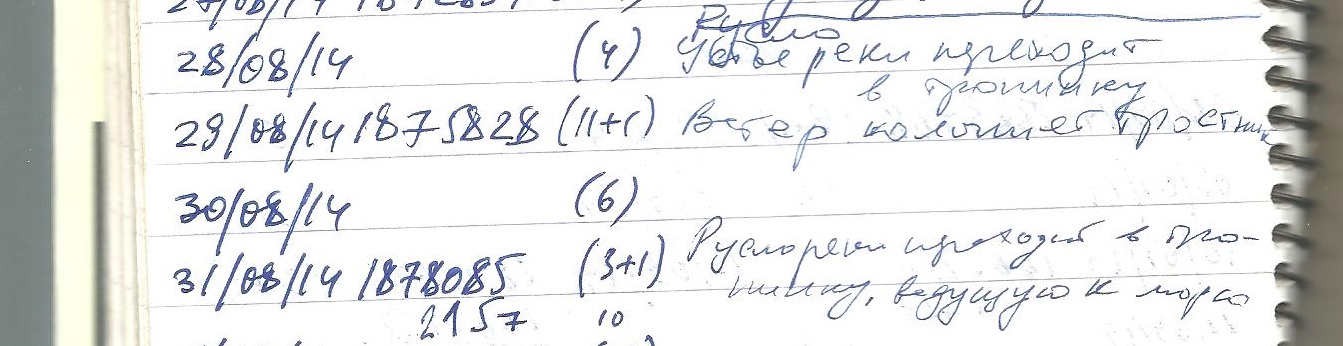 Русло
28/08/14 (4) Устье реки переходит
в тропинку
29/08/14 1875828 (11+1) Ветер колышет тростник
30/08/14 (6)
31/08/14 1878085 (3+1) Русло реки переходит в тро-
пинку, ведущую к морю
2157 10